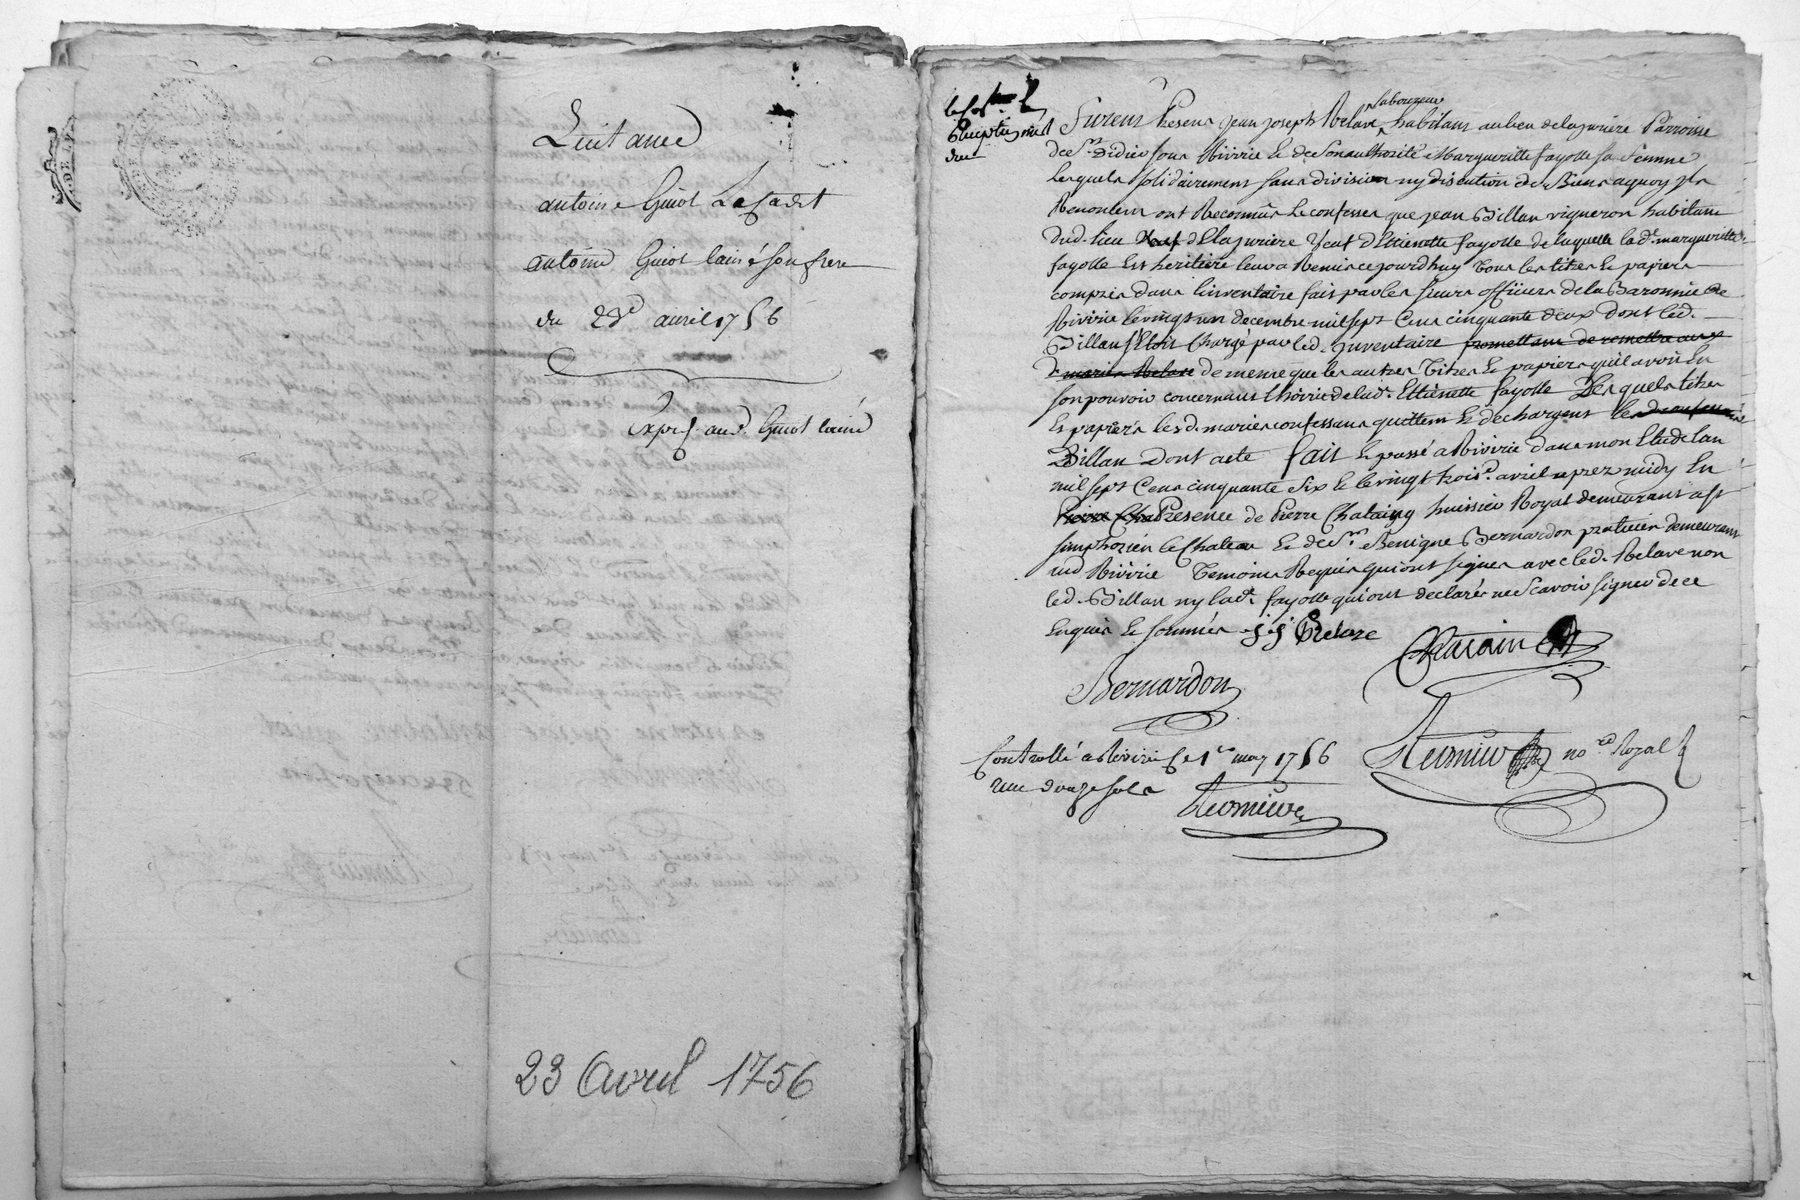 Quitance
antoine Guiot Le Cadet
antoine Guiot lainé son frere
du 23e avril 1756
Expé aud. Guiot lainé
23 Avril 1756
Furent Presens jean joseph Relave laboureur habitans au lieu de lajuriere Parroisse
de St. didier sous Riviric & de son authorité Margueritte fayolle sa femme
lesquels solidairement sans division ny discution de Biens aquoy ils
Renontent ont Reconnûs & confessés que jean Billau vigneron habitans
dud. lieu de lajuriere veuf d'Ettienette fayolle de laquelle lad. margueritte
fayolle est heritiere leur a Remis cejourdhuy tous les titres & papiers
compris dans l'inventaire fait par les sieurs officiers de la Baronnie de
Riviric le vingt un decembre mil sept cens cinquante deux dont led.
Billau s'étoit chargé par led. inventaire promettant de remettre aux
d. mariés Relave de meme que les autres titres & papiers quil avoit en
son pouvoir concernant l'hoirie de lad. Ettienette fayolle Desquels titres
& papiers lesd. mariés confessans quittent & dechargent led.
Billau Dont acte fait & passé a Riviric dans mon Etude lan
mil sept cens cinquante six & le vingt trois. avril aprez midy En
Pierre Cha Presence de Pierre Chatain huissier Royal demeurant a St
simphorien le Chateau & de Sr. Benigne Bernardon praticien demeurant
aud Riviric Temoins Requis qui ont signés avec led. Relave non
led. Billau ny lad. fayolle qui ont declarés ne Scavoir signer de ce
Enquis & sommés j j Relave
Chatain
Bernardon
Controllé a Riviric le 1er may 1756
Reçu douze sols
no.re Royal